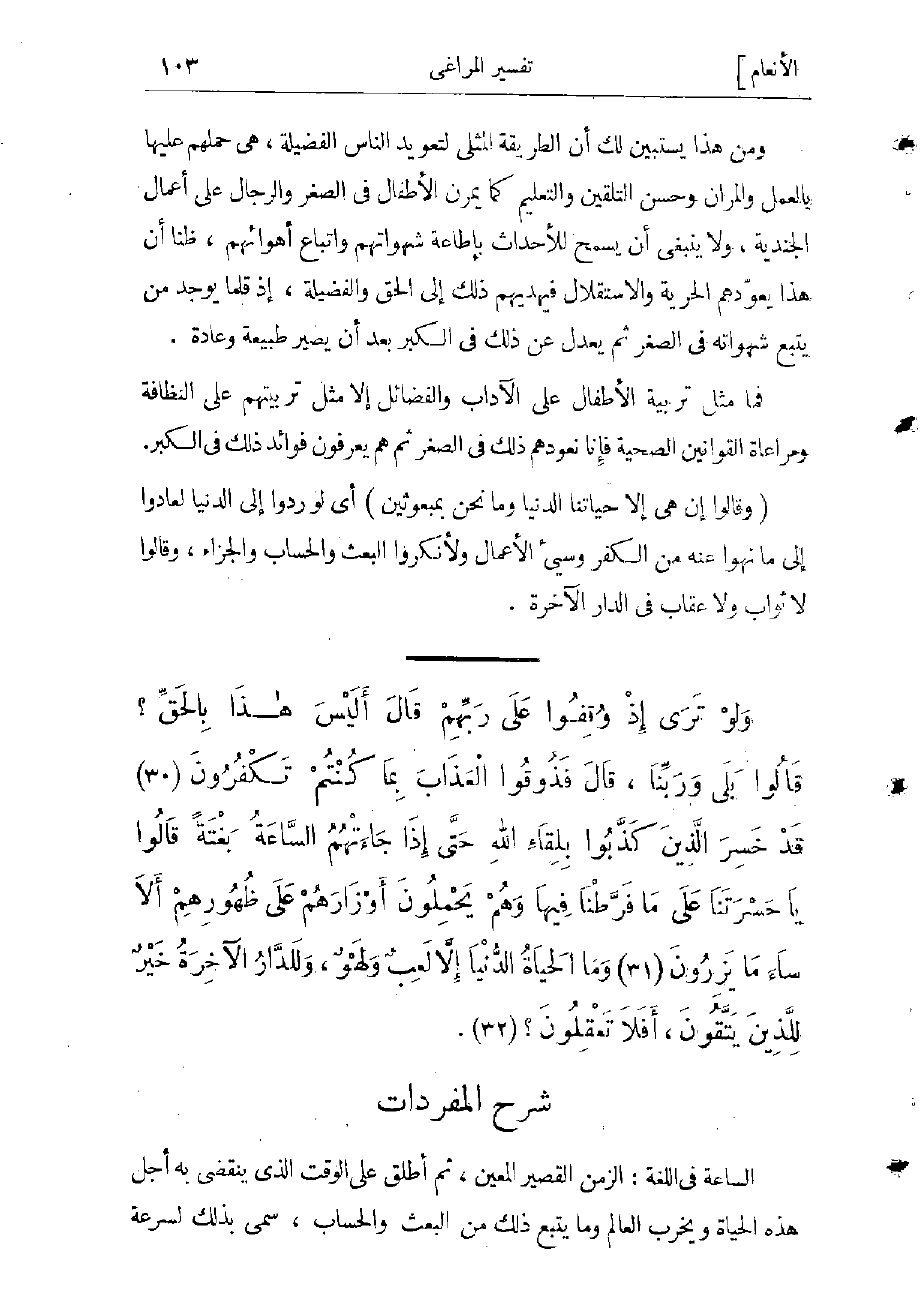 الأنعام ] تفسير المراغى ١٠٣
ومن هذا يستبين لك أن الطريقة المثلى لتعويد الناس الفضيلة ، هى حملهم عليها
بالعمل والمران وحسن التلقين والتعليم كما يمرن الأطفال فى الصغر والرجال على أعمال
الجندية ، ولا ينبغى أن يسمح للأحداث بإطاعة شهواتهم واتباع أهوائهم ، ظنا أن
هذا يعوّدهم الحرية والاستقلال فيهديهم ذلك إلى الحق والفضيلة ، إذ قلما يوجد من
يتبع شهواته فى الصغر ثم يعدل عن ذلك فى الكبر بعد أن يصير طبيعة وعادة .
فما مثل تربية الأطفال على الآداب والفضائل إلا مثل تربيتهم على النظافة
ومراعاة القوانين الصحية فإنا نعودهم ذلك فى الصغر ثم هم يعرفون فوائد ذلك فى الكبر.
( وقالوا إن هى إلا حياتنا الدنيا وما نحن بمبعوثين ) أى لو ردوا إلى الدنيا لعادوا
إلى ما نهوا عنه من الكفر وسيئ الأعمال ولأنكروا البعث والحساب والجزاء ، وقالوا
لا ثواب ولا عقاب فى الدار الآخرة .
وَلَوْ تَرَى إِذْ وُقِفُوا عَلَى رَبِّهِمْ قَالَ أَلَيْسَ هٰذَا بِالْحَقِّ ؟
قَالُوا بَلَى وَرَبِّنَا ، قَالَ فَذُوقُوا الْعَذَابَ بِمَا كُنْتُمْ تَكْفُرُونَ (٣٠)
قَدْ خَسِرَ الَّذِينَ كَذَّبُوا بِلِقَاءِ اللهِ حَتَّى إِذَا جَاءَتْهُمُ السَّاعَةُ بَغْتَةً قَالُوا
يَا حَسْرَتَنَا عَلَى مَا فَرَّطْنَا فِيهَا وَهُمْ يَحْمِلُونَ أَوْزَارَهُمْ عَلَى ظُهُورِهِمْ أَلاَ
سَاءَ مَا يَزِرُونَ (٣١) وَمَا الْحَيَاةُ الدُّنْيَا إِلَّا لَعِبٌ وَلَهْوٌ ، وَلَلدَّارُ الْآخِرَةُ خَيْرٌ
لِلَّذِينَ يَتَّقُونَ ، أَفَلَا تَعْقِلُونَ ؟ (٣٢) .
شرح المفردات
الساعة فى اللغة : الزمن القصير المعين ، ثم أطلق على الوقت الذى ينقضى به أجل
هذه الحياة ويخرب العالم وما يتبع ذلك من البعث والحساب ، سمى بذلك لسرعة